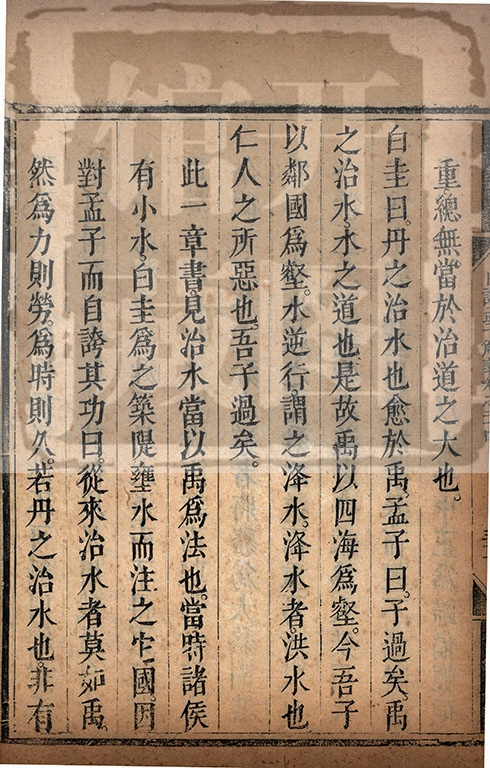 重總無當於治道之大也。
白圭曰。丹之治水也愈於禹。孟子曰。子過矣。禹
之治水。水之道也是故禹以四海爲壑。今吾子
以鄰國爲壑。水逆行謂之洚水。洚水者洪水也
仁人之所惡也。吾子過矣。
此一章書見治水當以禹爲法也。當時諸侯
有小水。白圭爲之築隄壅水而注之它國因
對孟子而自誇其功曰。從來治水者莫如禹。
然爲力則勞。爲時則久。若丹之治水也。非有